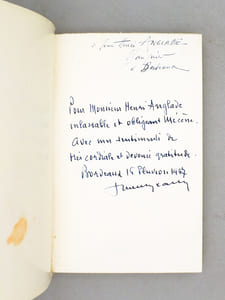 ANGLADE
à Bordeaux
Pour Monsieur Henri Anglade
inlassable et obligeant Mécène.
Avec mes sentiments de
très cordiale et dévouée gratitude.
Bordeaux 15 Février 1957